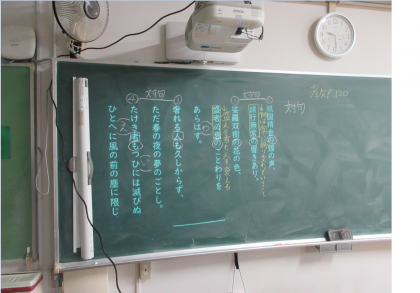 教科書P.120
対句
対句
①祇園精舎の鐘の声、
諸行無常の響きあり。
②沙羅双樹の花の色、
盛者必衰のことわりを
あらはす。
対句
③奢れる人も久しからず、
ただ春の夜の夢のごとし。
④たけき者もつひには滅びぬ
ひとへに風の前の塵に同じ